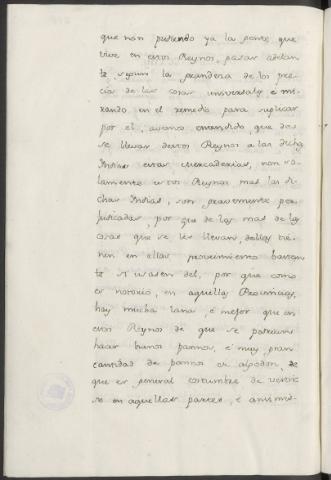 que non pudiendo ya la gente que
vive en esos Reynos, pasar adelan
te, segun la grandeza de los pre
cios de las cosas universales, é mi
rando, en el remedio para suplicar
por el, avemos entendido que des
se llevar destos Reynos a las dichas
Indias estas mercaderias, non so
lamente estos Reynos mas las di
chas Indias, son gravemente per
judicadas, por que de las mas de las
cosas que se les llevan, dellos tie
nen en ellas proveimiento bastan
te si usasen del, por que como
es notorio, en aquellas Provincias,
hay mucha lana, é mejor que en
esos Reynos de que se podrian
hacer buenos pannos, é muy gran
cantidad de pannos de algodon, de
que es general costumbre de vestir
se en aquellas partes, é ansimis-